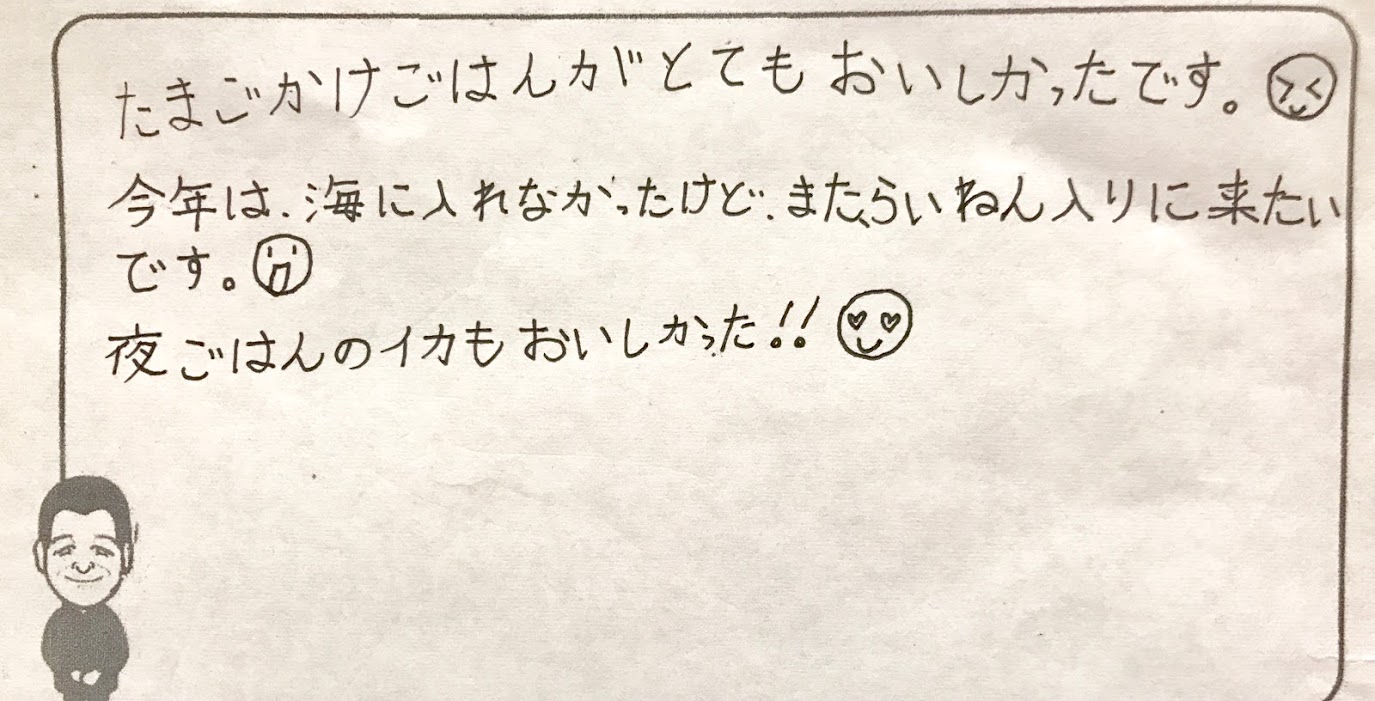 たまごかけごはんがとてもおいしかったです。
今年は、海に入れなかったけど、また、らいねん入りに来たい
です。
夜ごはんのイカもおいしかった!!